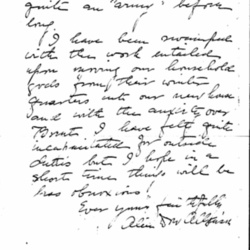 quite an "army" before
long.
I have been swamped
with the work entailed
upon moving our household
gods from their winter
quarters into our new house
and with the anxiety over
I have felt quite
incapacitated for outside
duties but I hope in a
short time things will be
less obnoxious!
Ever yours faithfully